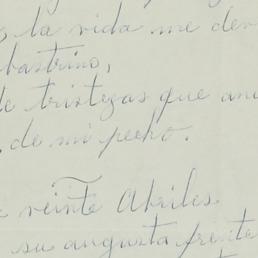 la vida me dev
bastrino,
de tristezas que ani
de mi pecho.
veinte Abriles
su augusta frente